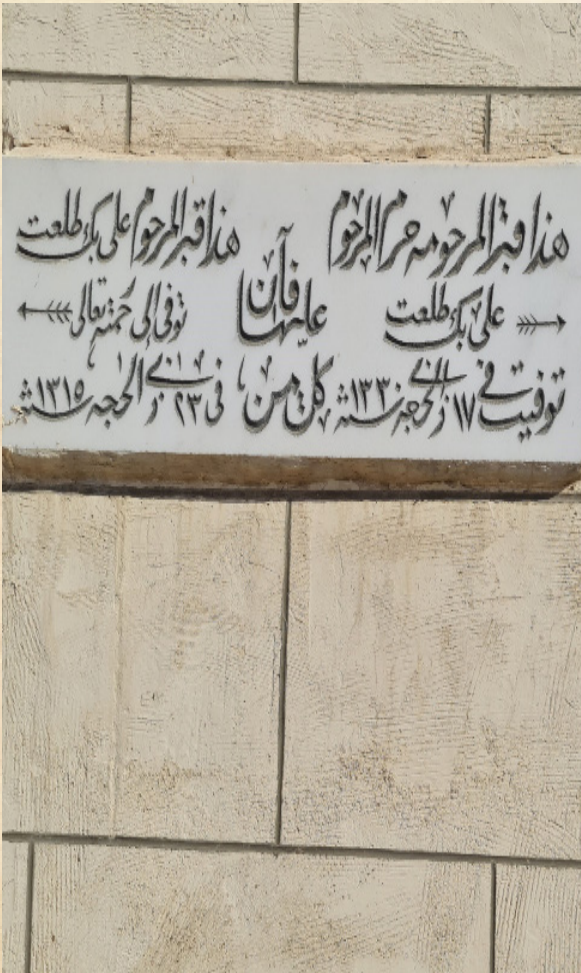 هذا قبر المرحومه حرم المرحوم
على بك طلعت
توفيت فى ١٧ ذى الحجه سنة ١٣٣٠
كل من
عليها
فان
هذا قبر المرحوم على بك طلعت
توفى الى رحمة تعالى
فى ٢٣ ذى الحجه سنة ١٣١٥